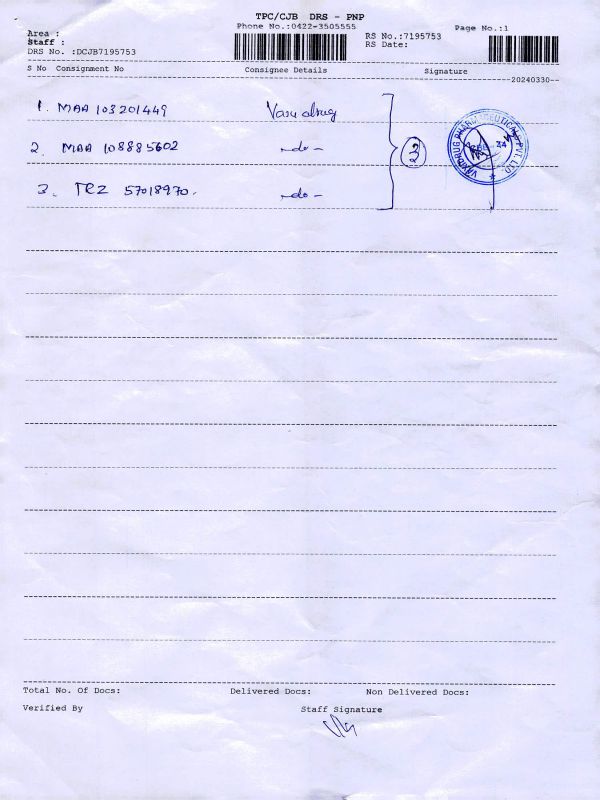 TPC/CJB DRS - PNP
Phone No.:0422-3505555
Page No.:1
Area :
Staff :
DRS No. :DCJB7195753
RS No.:7195753
RS Date:
S No Consignment No Consignee Details Signature
20240330
1. MAA 103201449 Vasu drug
2. MAA 108885602 -do-
3. TEZ 57018970. -do-
3
PHARMACEUTICALS PVT. LTD.
Total No. Of Docs: Delivered Docs: Non Delivered Docs:
Verified By Staff Signature